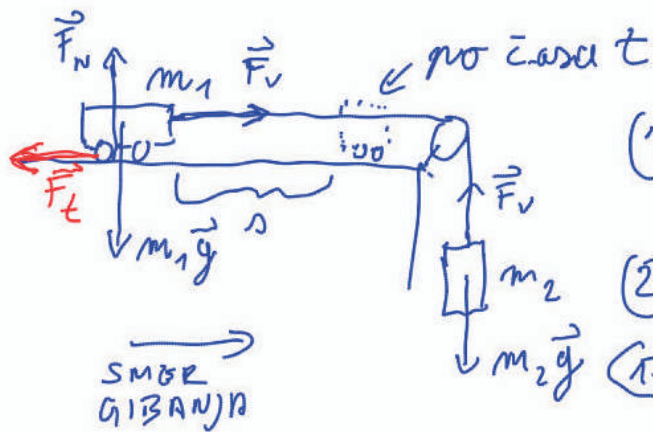 F⃗_N
m₁ F⃗_v
po času t
F⃗_t
s
m₁g⃗
F⃗_v
m₂
m₂g⃗
SMER
GIBANJA
(1
(2
(1